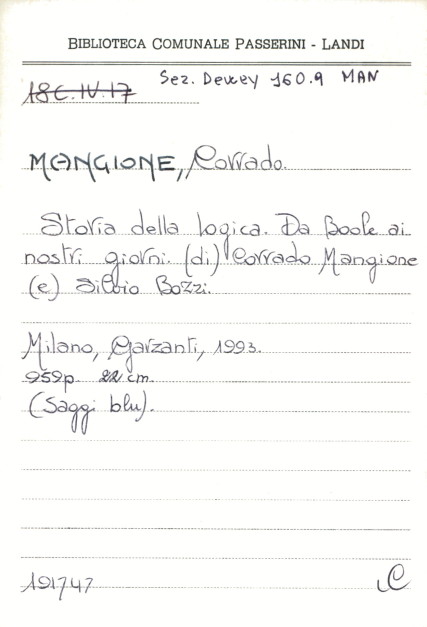 BIBLIOTECA COMUNALE PASSERINI - LANDI
Sez. Dewey 160.9 MAN
18C.IV.17
MANGIONE, Corrado.
Storia della logica. Da Boole ai
nostri giorni. (di) Corrado Mangione
(e) Silvio Bozzi.
Milano, Garzanti, 1993.
959p. 22 cm.
(Saggi blu).
191747